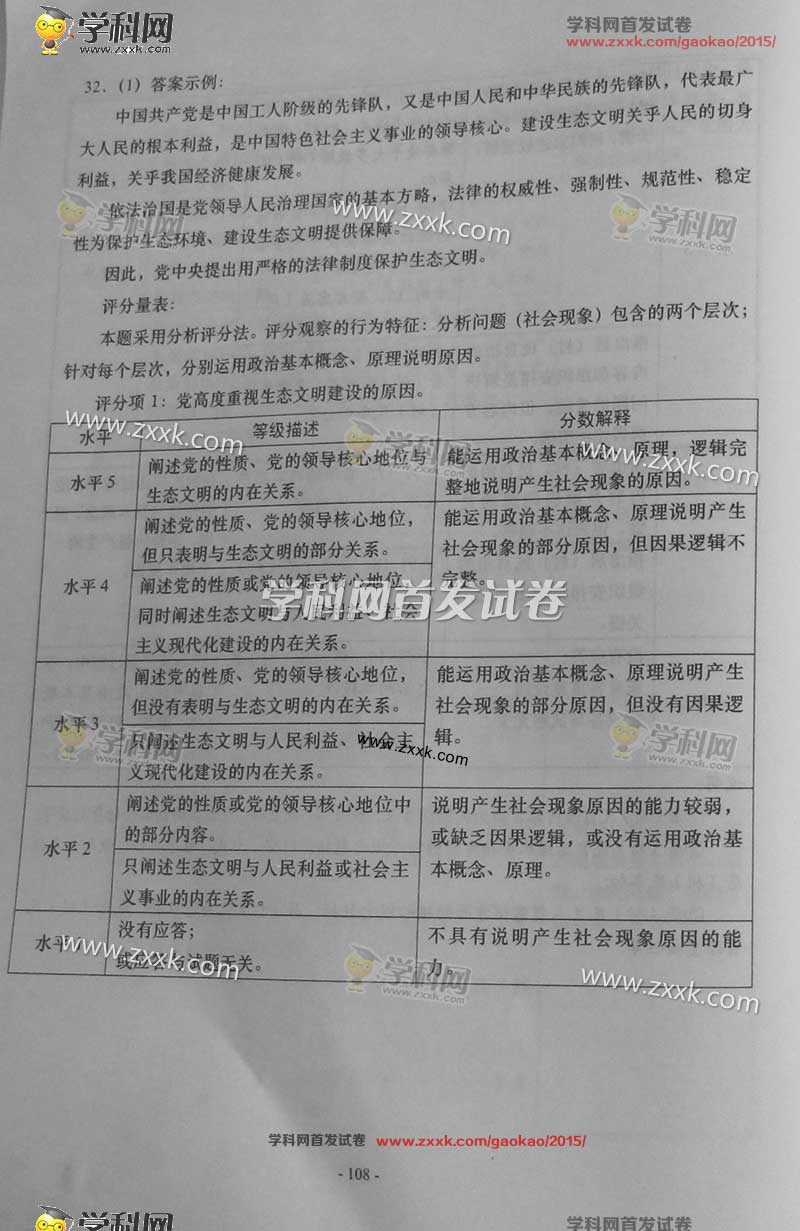 学科网 学科网首发试卷
www.zxxk.com www.zxxk.com/gaokao/2015/
32．(1) 答案示例：
中国共产党是中国工人阶级的先锋队，又是中国人民和中华民族的先锋队，代表最广
大人民的根本利益，是中国特色社会主义事业的领导核心。建设生态文明关乎人民的切身
利益，关乎我国经济健康发展。
依法治国是党领导人民治理国家的基本方略，法律的权威性、强制性、规范性、稳定
性为保护生态环境、建设生态文明提供保障。
因此，党中央提出用严格的法律制度保护生态文明。
评分量表：
本题采用分析评分法。评分观察的行为特征：分析问题（社会现象）包含的两个层次；
针对每个层次，分别运用政治基本概念、原理说明原因。
评分项 1：党高度重视生态文明建设的原因。
水平 等级描述 分数解释
水平 5 阐述党的性质、党的领导核心地位与 能运用政治基本概念、原理，逻辑完
生态文明的内在关系。 整地说明产生社会现象的原因。
阐述党的性质、党的领导核心地位， 能运用政治基本概念、原理说明产生
但只表明与生态文明的部分关系。 社会现象的部分原因，但因果逻辑不
水平 4 阐述党的性质或党的领导核心地位， 完整。
同时阐述生态文明与人民利益、社会
主义现代化建设的内在关系。
阐述党的性质、党的领导核心地位， 能运用政治基本概念、原理说明产生
但没有表明与生态文明的内在关系。 社会现象的部分原因，但没有因果逻
水平 3 只阐述生态文明与人民利益、社会主 辑。
义现代化建设的内在关系。
阐述党的性质或党的领导核心地位中 说明产生社会现象原因的能力较弱，
的部分内容。 或缺乏因果逻辑，或没有运用政治基
水平 2 只阐述生态文明与人民利益或社会主 本概念、原理。
义事业的内在关系。
水平 没有应答； 不具有说明产生社会现象原因的能
或应答与试题无关。 力。
学科网首发试卷
学科网首发试卷 www.zxxk.com/gaokao/2015/
- 108 -
学科网 学科网首发试卷